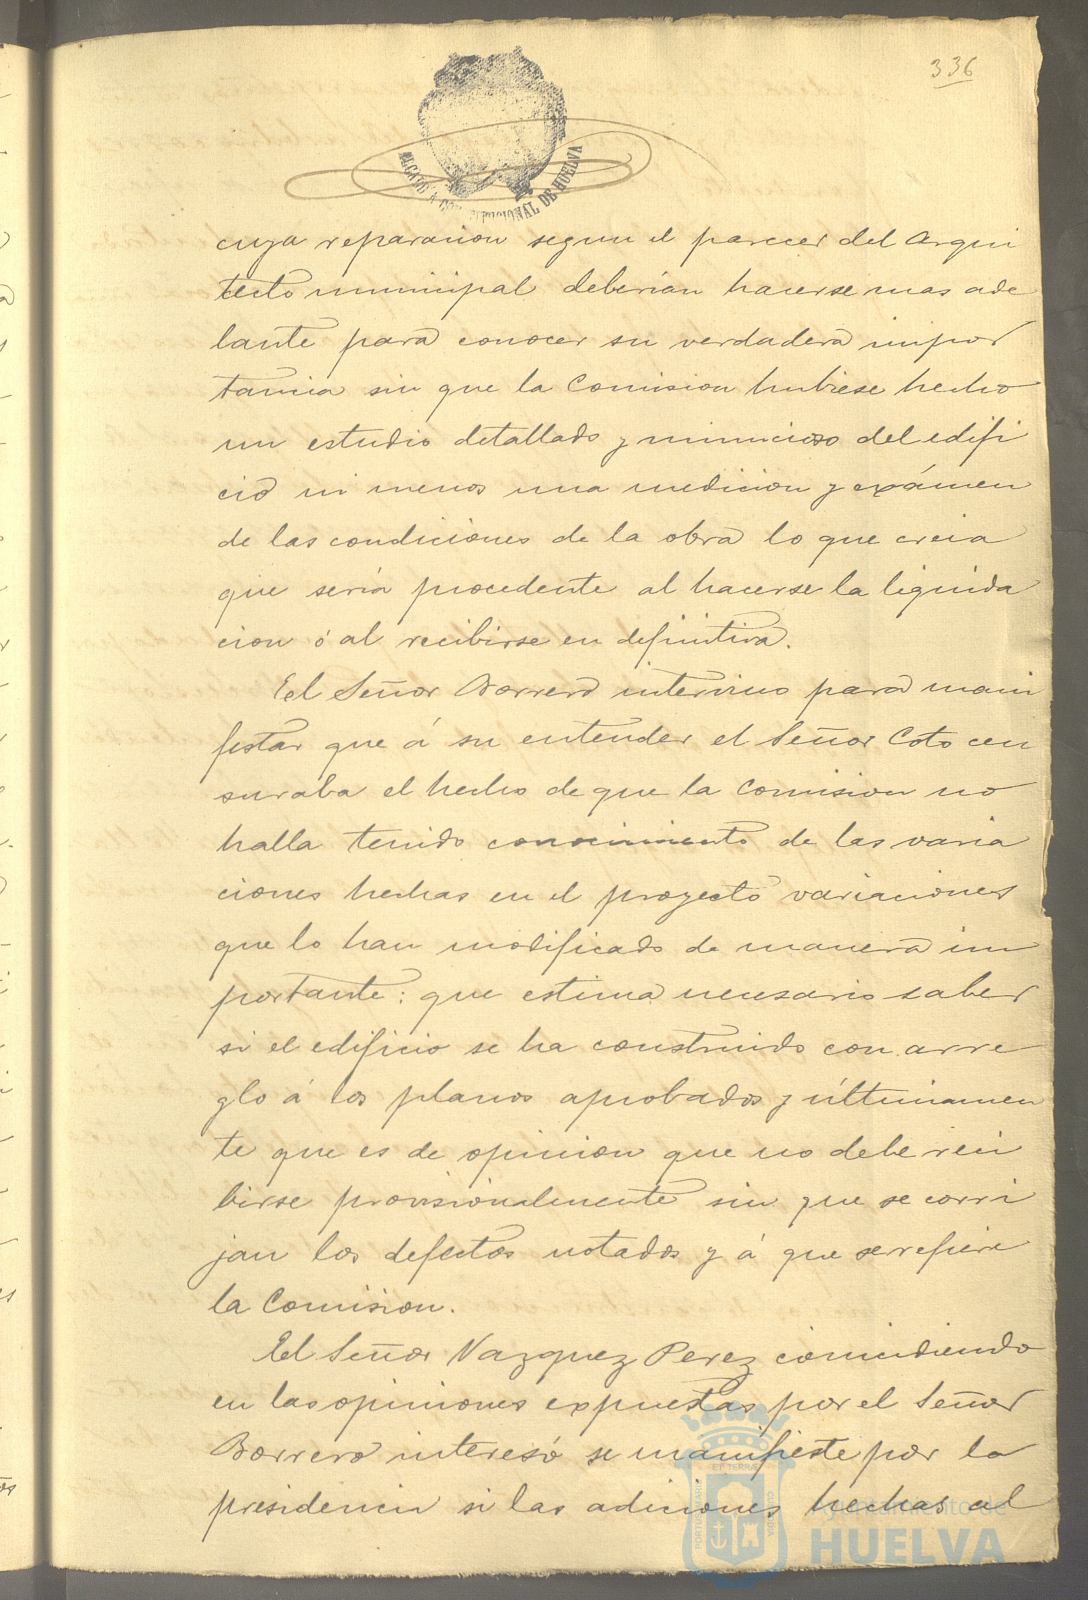 336
ALCALDIA CONSTITUCIONAL DE HUELVA
cuya reparacion segun el parecer del Arqui
tecto municipal deberian hacerse mas ade
lante para conocer su verdadera impor
tancia sin que la Comision hubiese hecho
un estudio detallado y minucioso del edifi
cio ni menos una medicion y exámen
de las condiciones de la obra lo que creia
que seria procedente al hacerse la liquida
cion ó al recibirse en definitiva.
El Señor Borrero intervino para mani
festar que á su entender el Señor Coto cen
suraba el hecho de que la Comision no
halla tenido conocimiento de las varia
ciones hechas en el proyecto variaciones
que lo han modificado de manera im
portante: que estima necesario saber
si el edificio se ha construido con arre
glo á los planos aprobados y últimamen
te que es de opinion que no debe reci
birse provisionalmente sin que se corri
jan los defectos notados y á que se refiere
la Comision.
El Señor Vazquez Perez coincidiendo
en las opiniones expuestas por el Señor
Borrero interesó se manifieste por la
presidencia si las adiciones hechas al
Ayuntamiento de
HUELVA